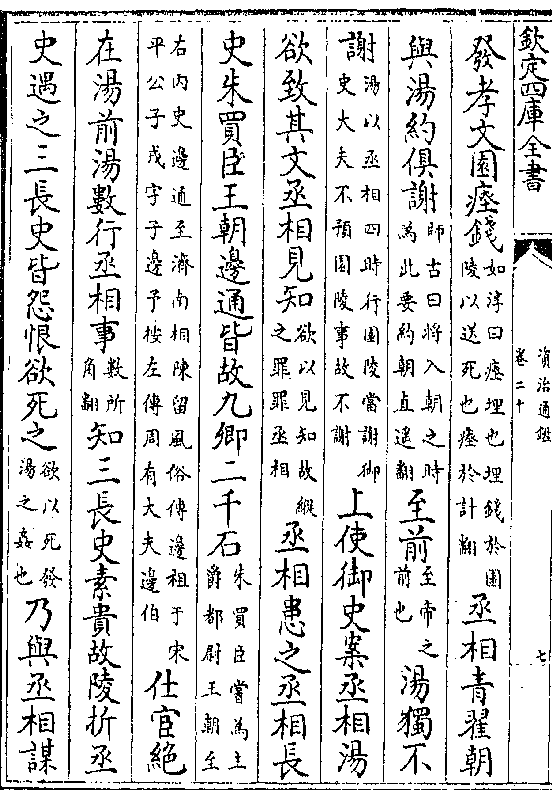 欽定四庫全書
資治通鑑
卷二十
七
發孝文園瘞錢如淳曰瘞埋也埋錢於園陵以送死也瘞於計翻丞相青翟朝
與湯約俱謝師古曰將入朝之時為此要約朝直遙翻至前至帝之前也湯獨不
謝湯以丞相四時行園陵當謝御史大夫不預園陵事故不謝上使御史案丞相湯
欲致其文丞相見知欲以見知故縱之罪罪丞相丞相患之丞相長
史朱買臣王朝邊通皆故九卿二千石朱買臣嘗為主爵都尉王朝至
右内史邊通至濟南相陳留風俗傳邊祖于宋平公子戎字子邊予按左傳周有大夫邊伯仕宦絶
在湯前湯數行丞相事數所角翻知三長史素貴故陵折丞
史遇之三長史皆怨恨欲死之欲以死發湯之姦也乃與丞相謀